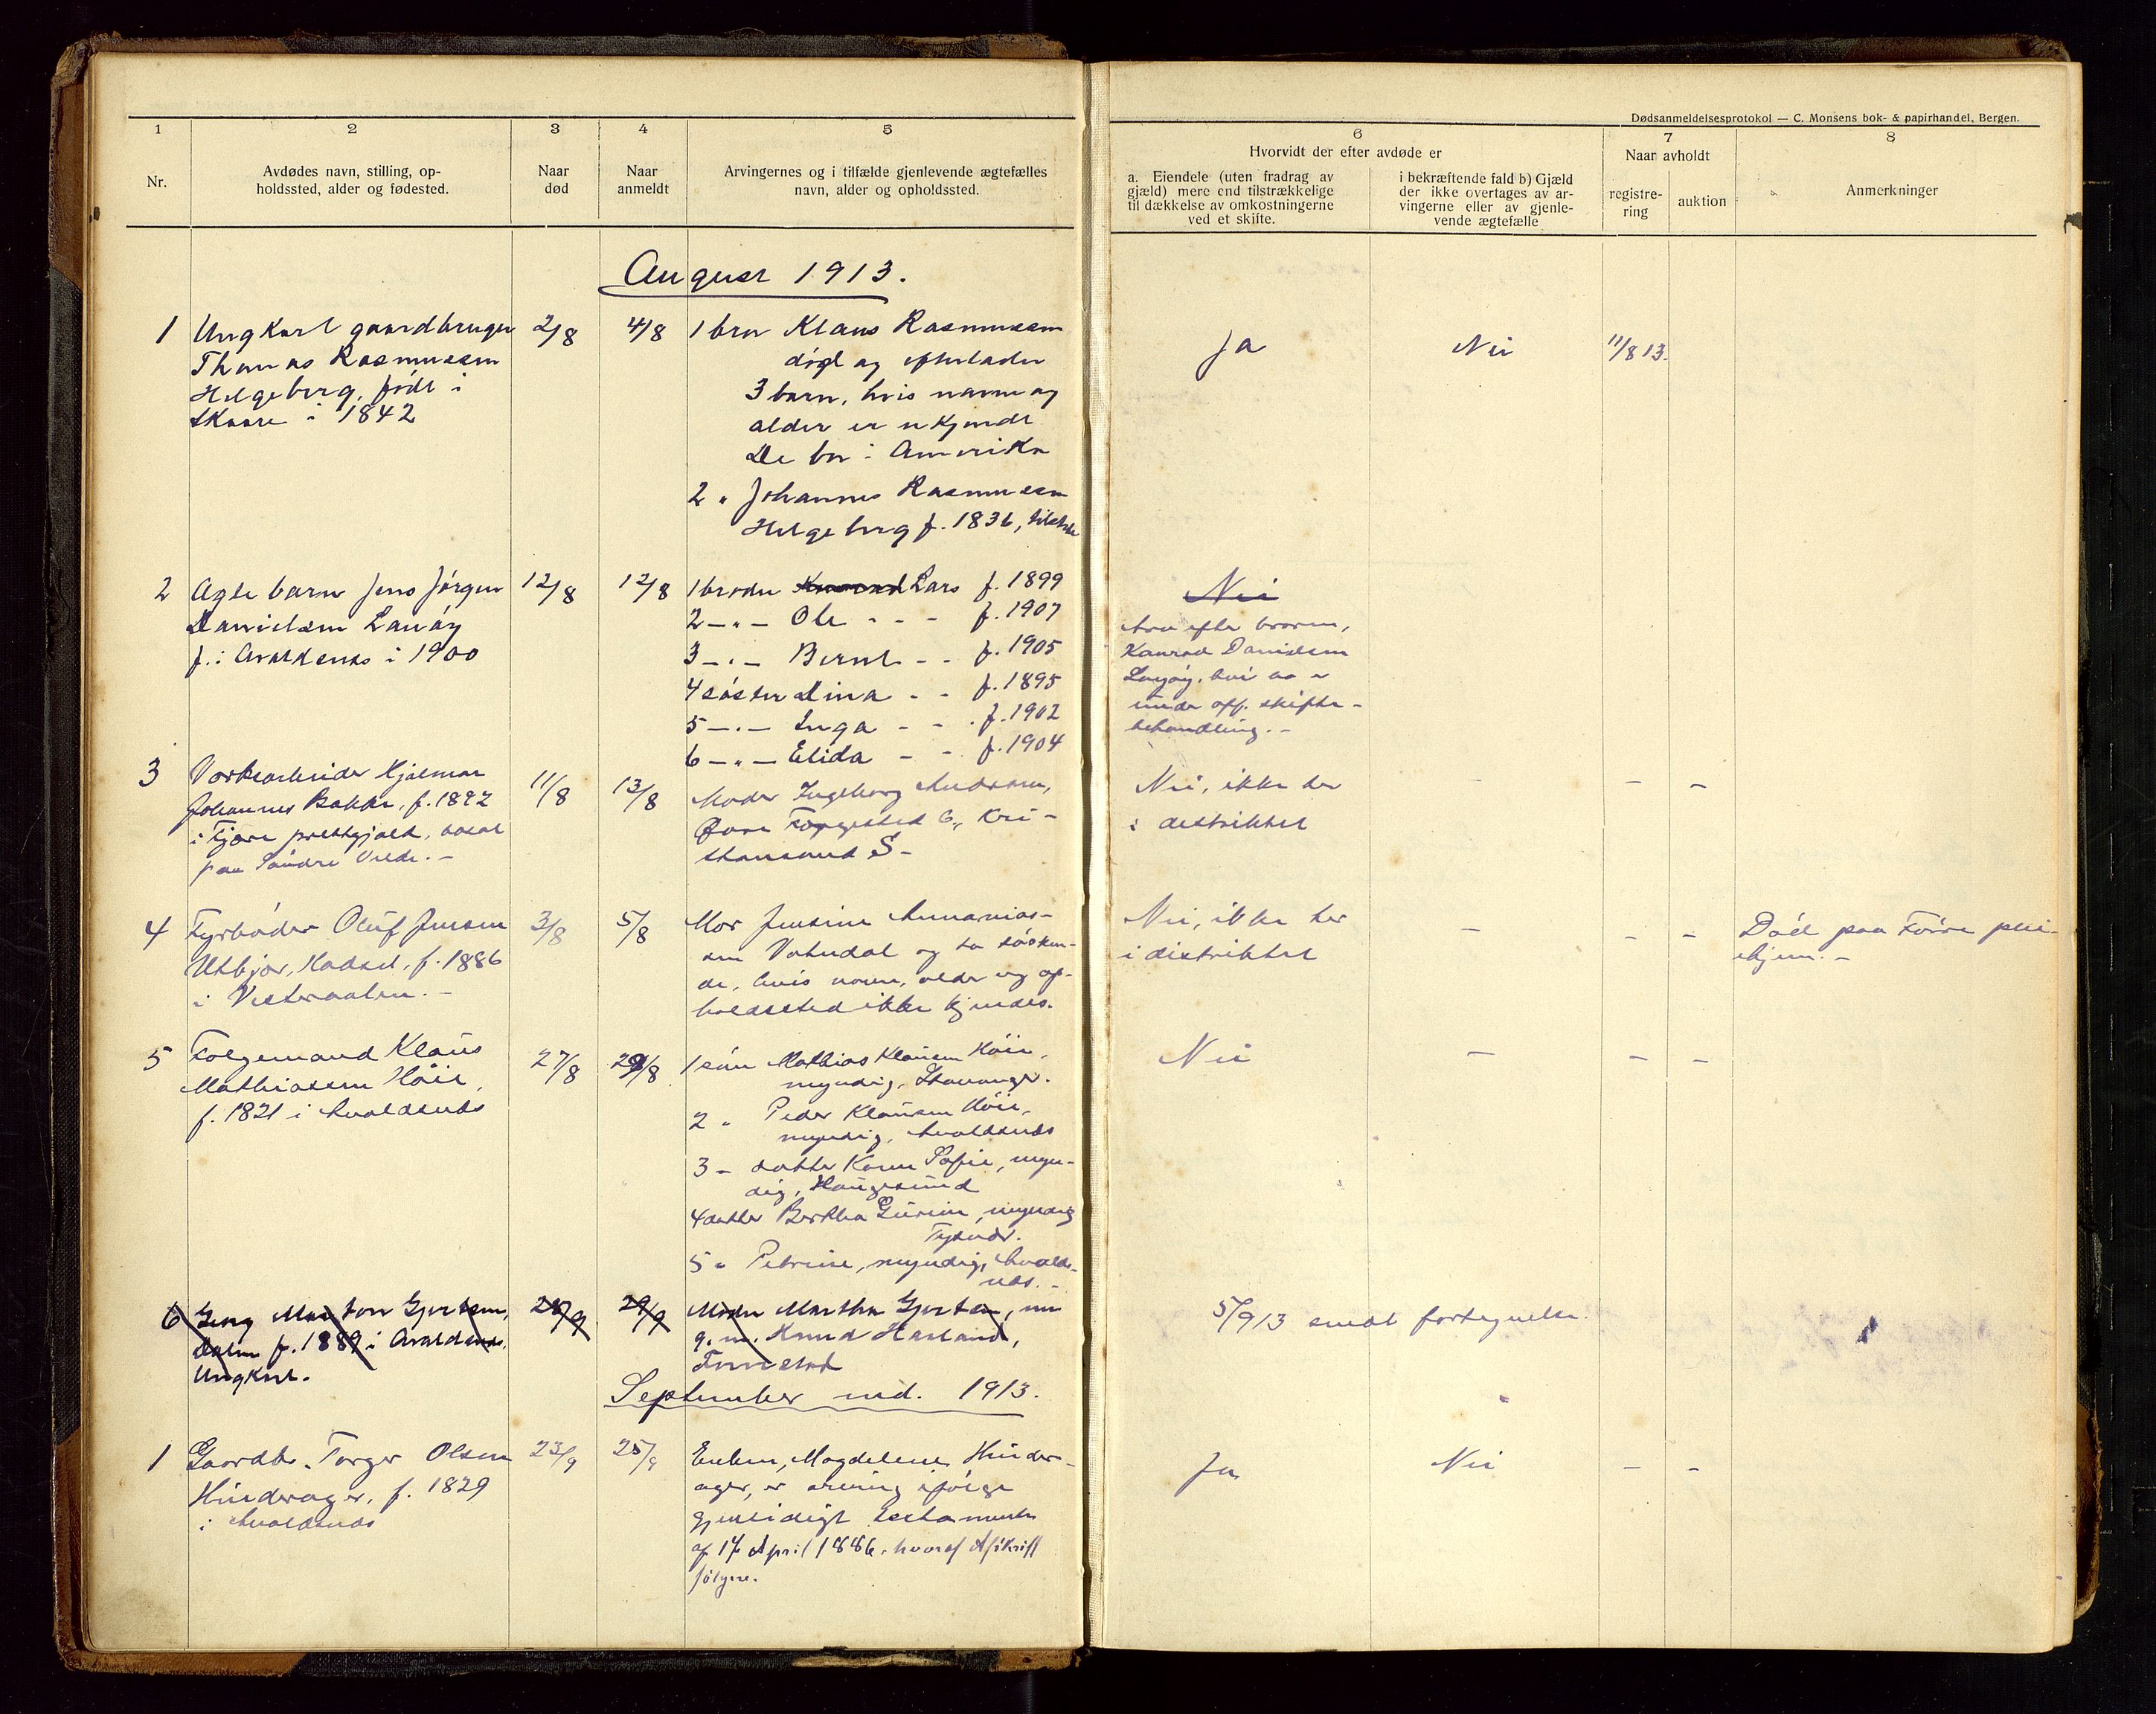 Dødsanmeldelsesprotokol — C. Monsens bok- & papirhandel, Bergen.
1 2 3 4 5 6 7 8
Nr.
Avdødes navn, stilling, op-
holdssted, alder og fødested.
Naar
død
Naar
anmeldt
Arvingernes og i tilfælde gjenlevende ægtefælles
navn, alder og opholdssted.
Hvorvidt der efter avdøde er
a. Eiendele (uten fradrag av
gjæld) mere end tilstrækkelige
til dækkelse av omkostningerne
ved et skifte.
i bekræftende fald b) Gjæld
der ikke overtages av ar-
vingerne eller av gjenle-
vende ægtefælle
Naar avholdt
registre-
ring
auktion
Anmerkninger
August 1913.
1 Ungkarl gaardbruger
Thomas Rasmussen
Helgeberg, født i
Skaare i 1842
2/8
4/8
1 bror Klaus Rasmussen
død og efterlader
3 barn, hvis navne og
alder er ukjendt
De bor i Amerika
2 " Johannes Rasmussen
Helgeberg f. 1836,
Ja
Nei
11/8 13.
2 Ægte barn Jens Jørgen
Danielsen Lauøy
f. i Avaldsnes i 1900
12/8
12/8
1 broder Lars f. 1899
2 -"- Ole - - - f. 1907
3 -"- Bernt - - f. 1905
4 søster Dina - - f. 1895
5 -"- Inga - - f. 1902
6 -"- Elida - - f. 1904
Nei
Arv efter broren,
Konrad Danielsen
Lauøy, hvis bo er
under off. skifte-
behandling. -
3 Verksarbeider Hjalmar
Johannes Bakke, f. 1892
i Fjære prestegjæld, bosat
paa Søndre Vede. -
11/8
13/8
Moder Ingeborg Andersen,
Øvre 6, Kri-
stiansand S -
Nei, ikke her
i distriktet
- - -
4 Fyrbøder Oluf Jensen
Utbjør, Hadsel, f. 1886
i Vesteraalen. -
3/8
5/8
Mor Jensine Annanias-
sen Vatndal og to søsken-
de, hvis navn, alder og op-
holdssted ikke kjendes.
Nei, ikke her
i distriktet
- - -
Død paa Førre plei-
ehjem. -
5 Følgemand Klaus
Mathiassen Høie,
f. 1821 i Avaldsnes
27/8
29/8
1 søn Mathias Klausen Høie,
myndig, Stavanger.
2 " Peder Klausen Høie,
myndig, Avaldsnes
3 - datter Karen Sofie, myn-
dig, Haugesund
4 datter Bertha Gurine, myndig
Tysvær.
5 " Petrine, myndig, Avalds-
nes. -
Nei
- - -
6 Georg Marton Gjertsen,
Dalen f. 1889 i Avaldsnes.
Ungkarl.
28/9
29/9
Moder Martha Gjertsen, nu
g. m. Knud Hasland,
5/9 13 sendt fortegnelse.
September md. 1913.
1 Gaardbr. Torger Olsen
Hinderager, f. 1829
i Avaldsnes
23/9
25/9
Enken, Magdelene Hinder-
ager, er arving ifølge
gjensidigt testamente
af 17 April 1886, hvoraf Afskrift
følger.
Ja
Nei
- -